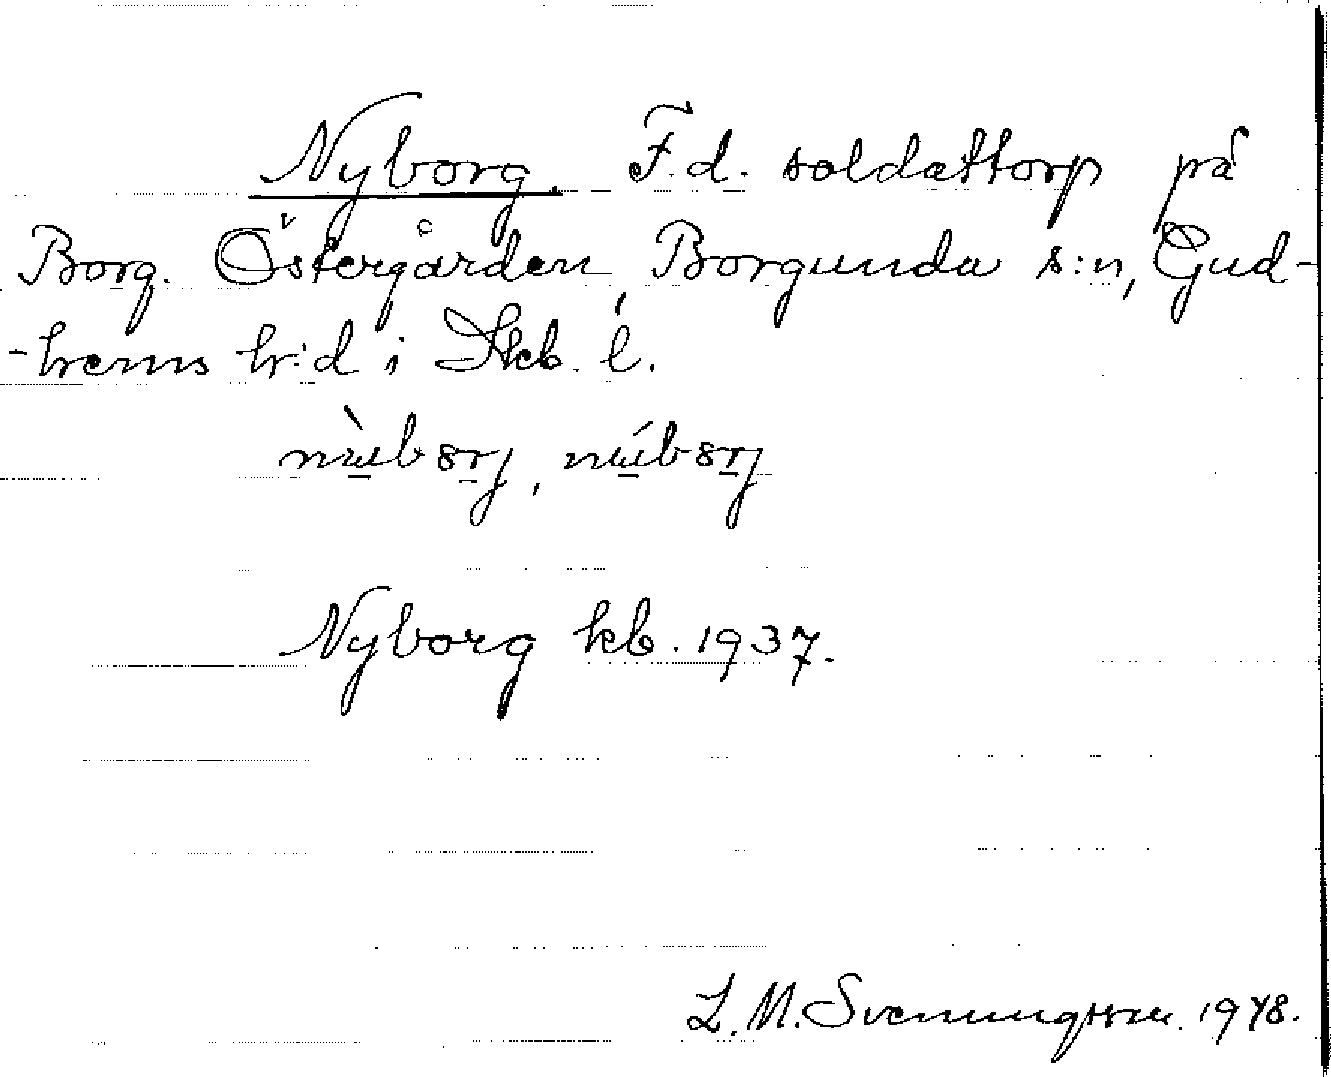 Nyborg. F.d. soldattorp på
Borg. Östergården, Borgunda s:n, Gud-
-hems h:d i Skb. l.
Nyborg kb. 1937.
L. M. Svenungsson. 1948.